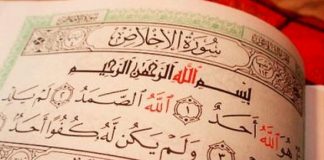 سُورَةُ الإِخْلَاصِ
بِسْمِ اللَّهِ الرَّحْمَنِ الرَّحِيمِ
هُوَ اللَّهُ أَحَدٌ ١ اللَّهُ الصَّمَدُ ٢ لَمْ يَلِدْ
٣ وَلَمْ يَكُن لَّهُ كُفُوًا أَحَدٌ